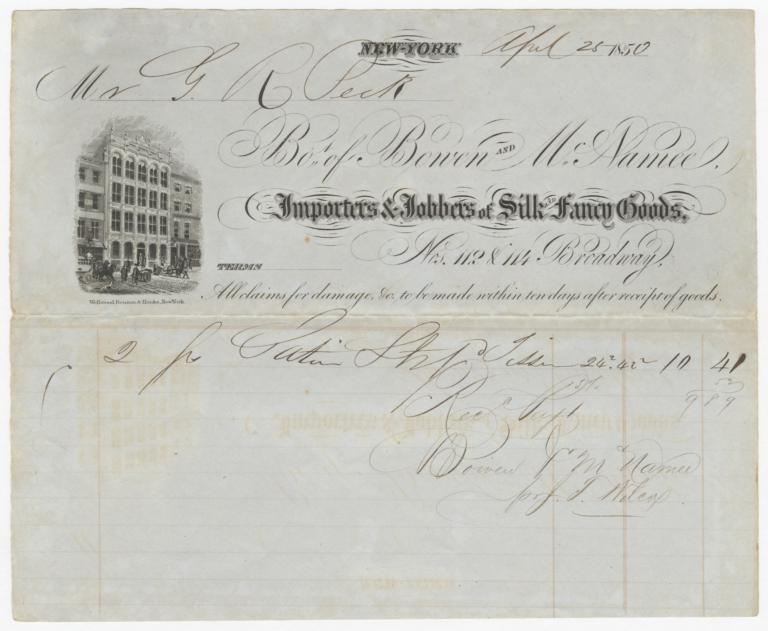 NEW-YORK April 25 1850
Mr G. R Peck
Bot. of Bowen AND McNamee.
Importers & Jobbers of Silk AND Fancy Goods.
Nos. 112 & 114 Broadway.
TERMS
All claims for damage, &c, to be made within ten days after receipt of goods.
Wellstood, Benson & Hanks, New York.
2 ps Satin 10 41
5% 52
Recd Payt 9 89
Bowen & McNamee
J. Wilcox